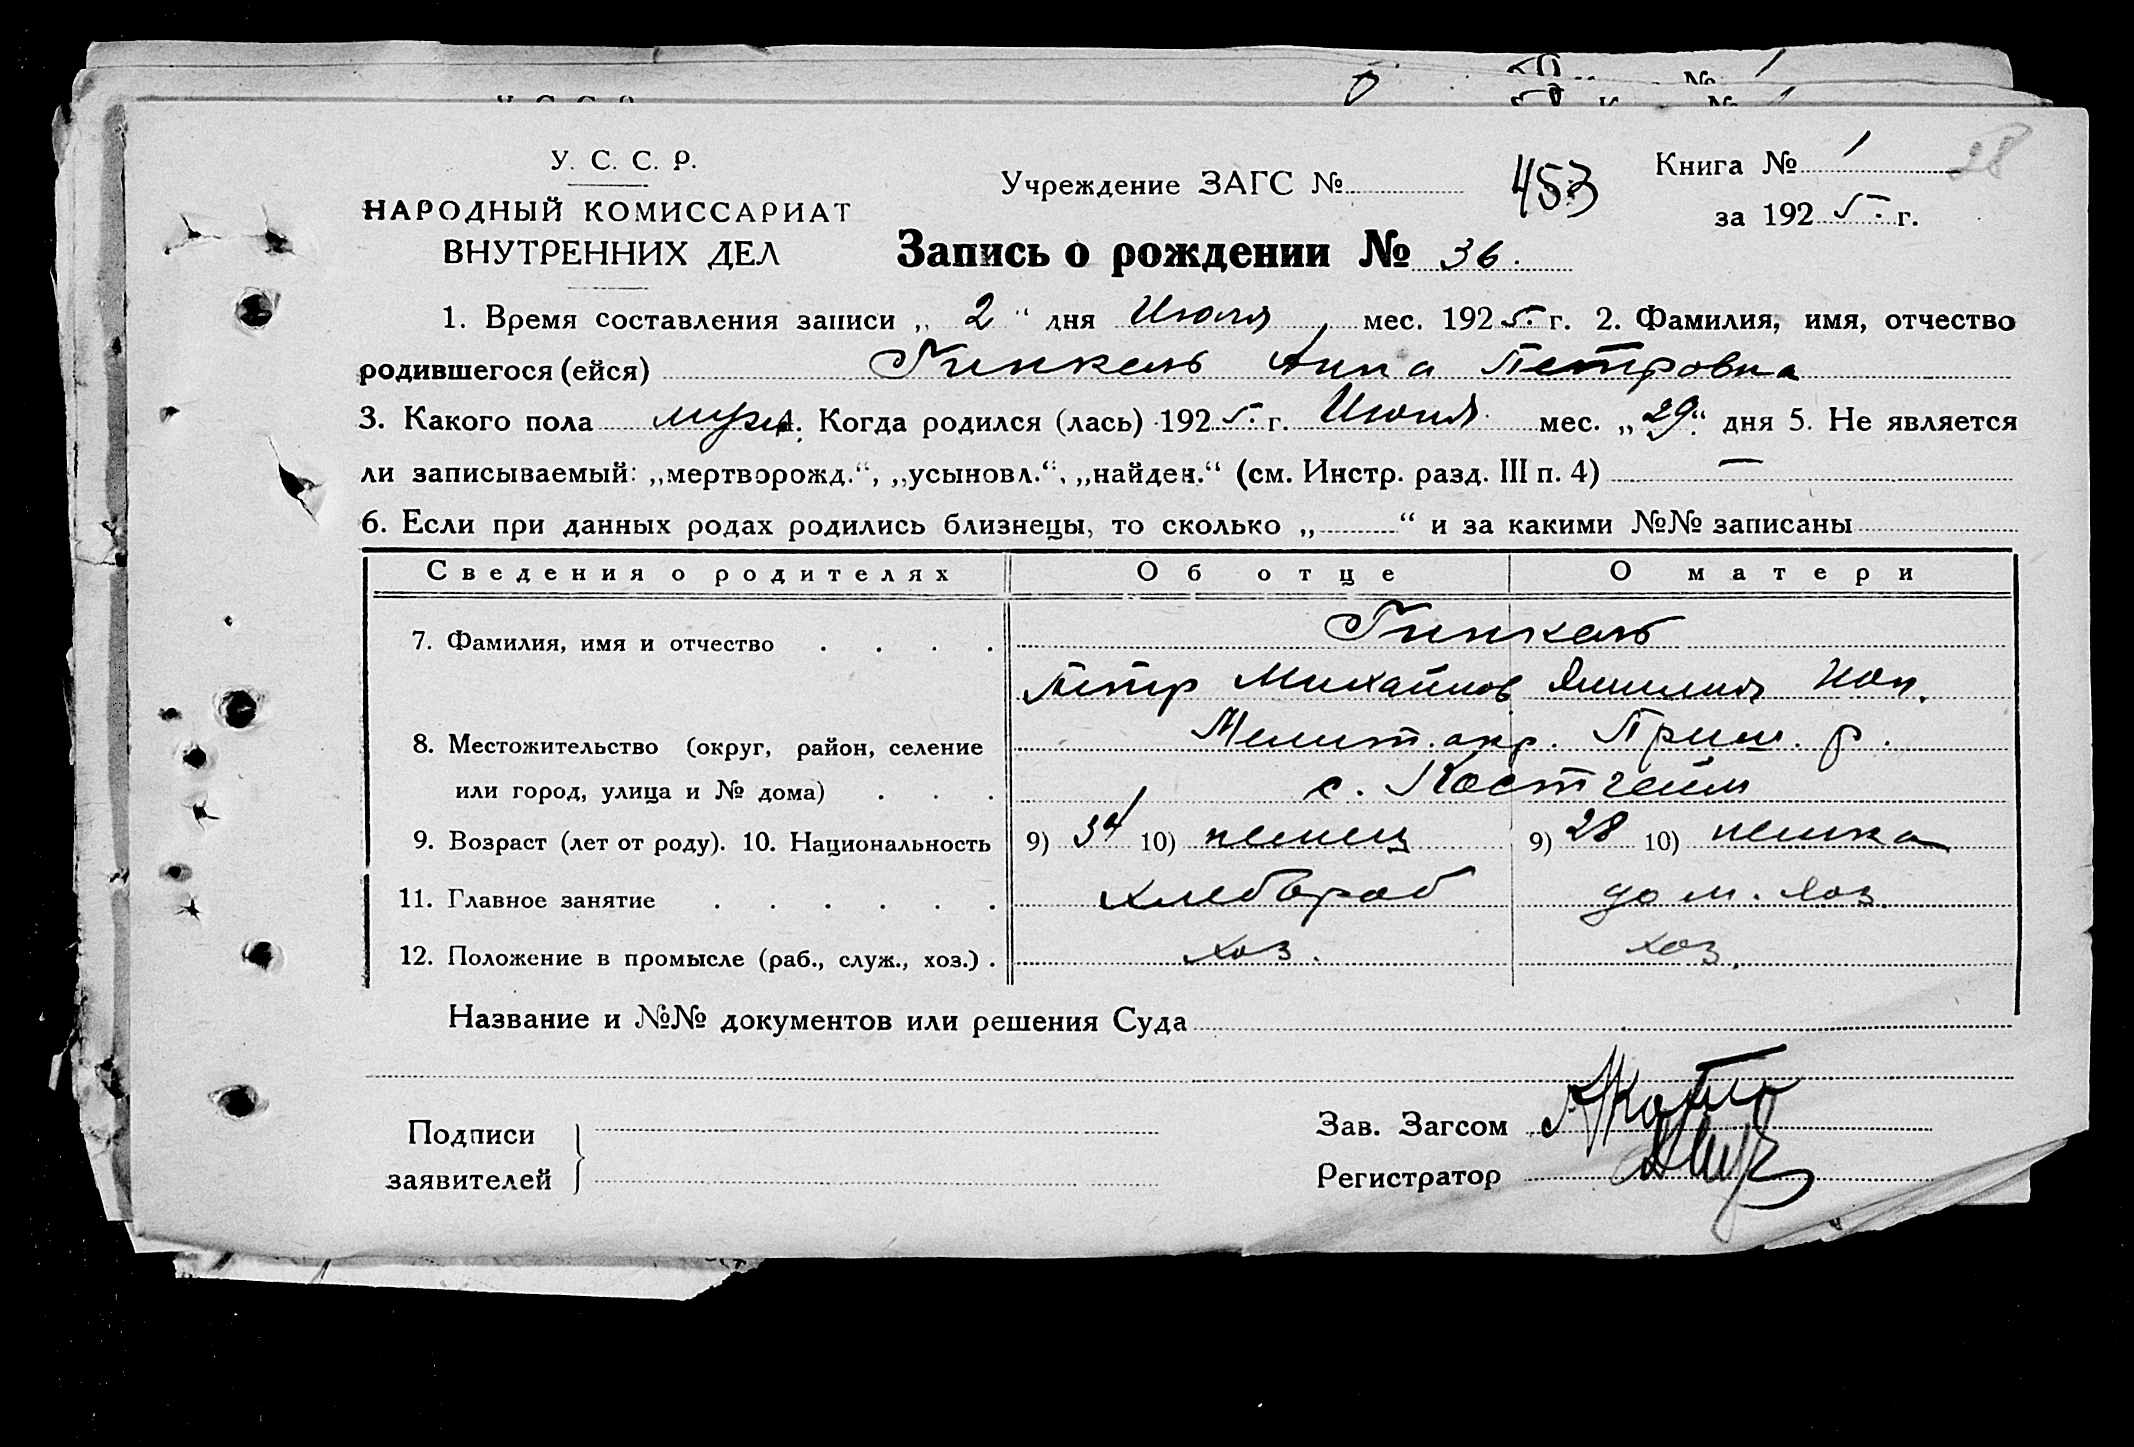 У. С. С. Р.
НАРОДНЫЙ КОМИССАРИАТ
ВНУТРЕННИХ ДЕЛ
Учреждение ЗАГС №
453
Книга № 1
28
за 1925 г.
Запись о рождении № 36.
1. Время составления записи „2“ дня Июля мес. 1925 г. 2. Фамилия, имя, отчество
родившегося (ейся) Гинкель Анна Петровна
3. Какого пола муж 4. Когда родился (лась) 1925 г. Июня мес. „29“ дня 5. Не является
ли записываемый: „мертворожд.“, „усыновл.“, „найден.“ (см. Инстр. разд. III п. 4) —
6. Если при данных родах родились близнецы, то сколько „ “ и за какими №№ записаны
Сведения о родителях Об отце О матери
7. Фамилия, имя и отчество . . . . Гинкель
Петр Михайлов Эмилия
8. Местожительство (округ, район, селение Мелит. окр. Приш. р.
или город, улица и № дома) . . . с. Костгейм
9. Возраст (лет от роду). 10. Национальность 9) 34 10) немец 9) 28 10) немка
11. Главное занятие . . . . . . хлебороб дом. хоз.
12. Положение в промысле (раб., служ., хоз.) . хоз. хоз.
Название и №№ документов или решения Суда
Подписи
заявителей
Зав. Загсом
Регистратор